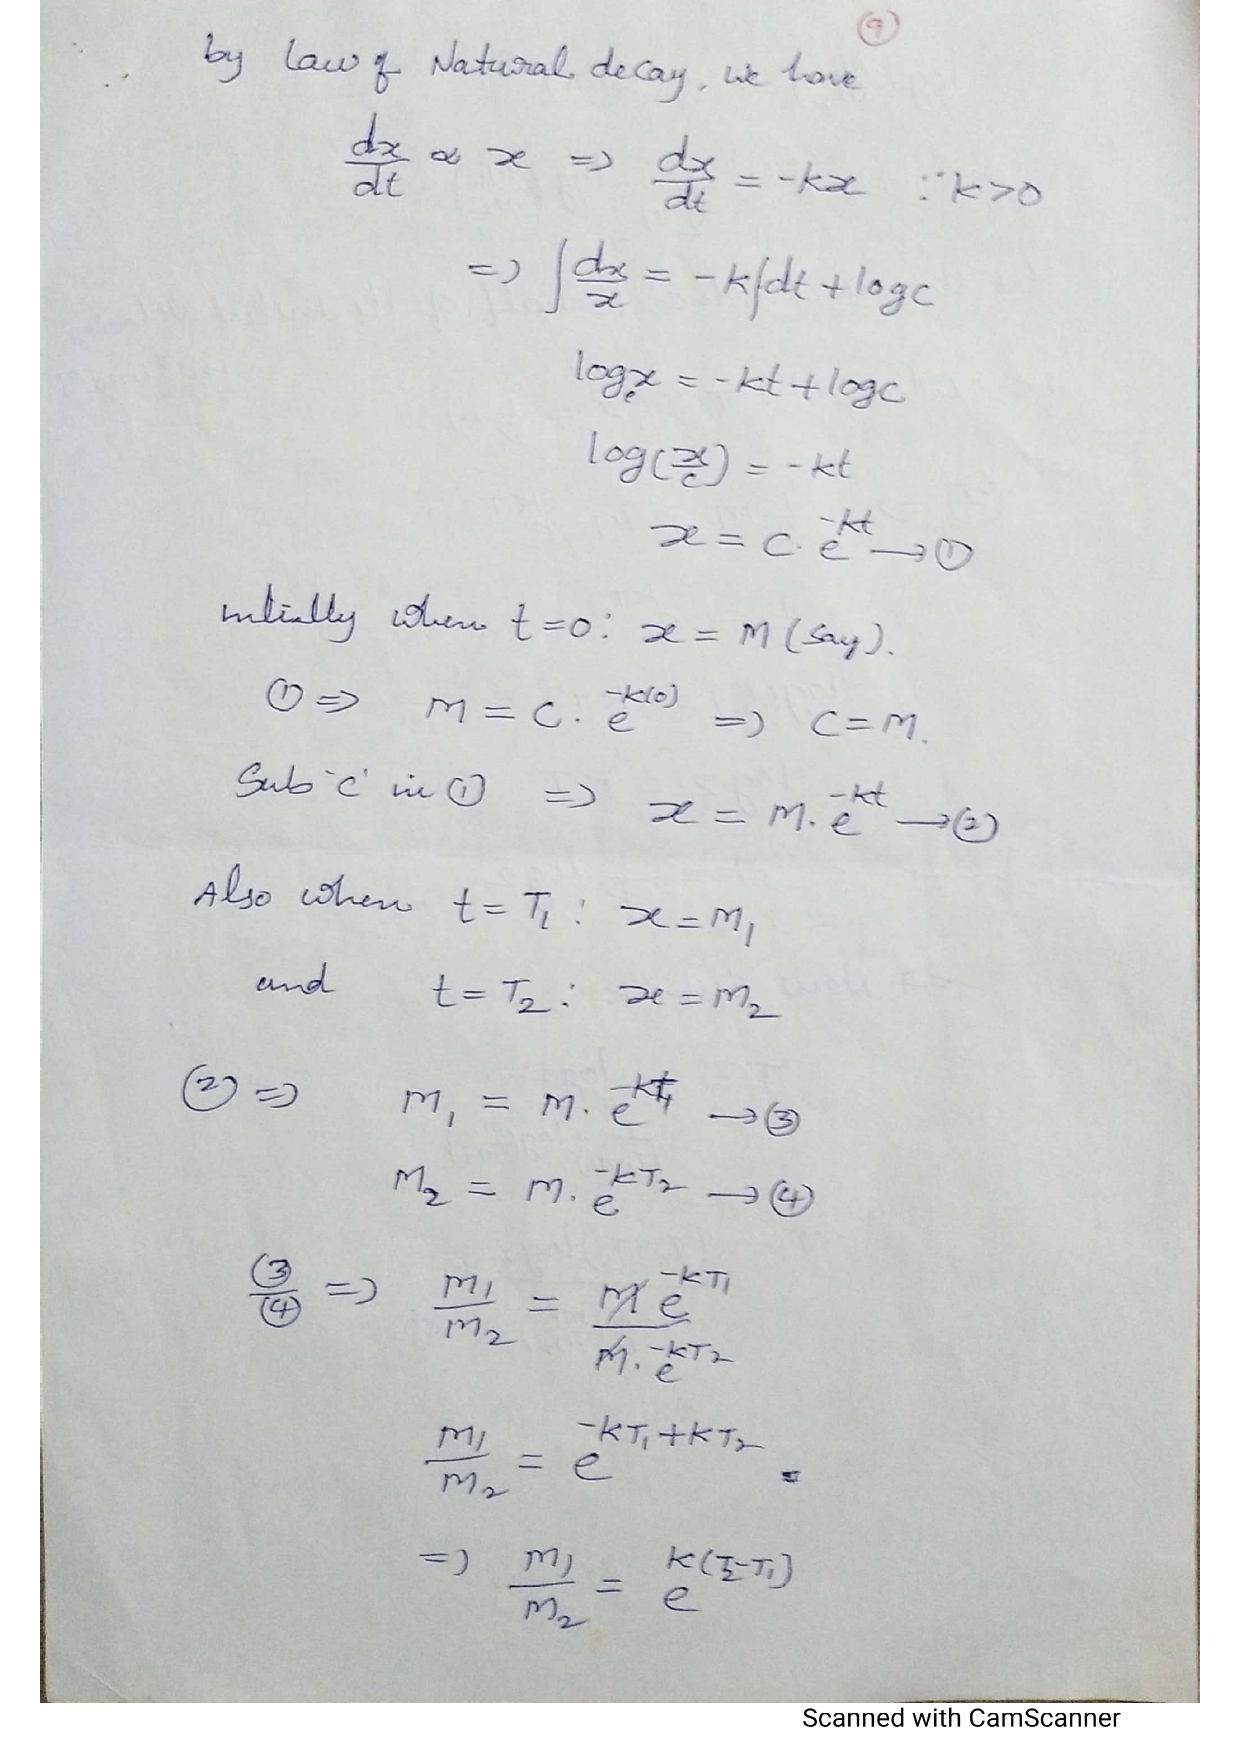 9
by Law of Natural decay, we have
dx/dt ∝ x => dx/dt = -kx ∵ k>0
=> ∫ dx/x = -k∫dt + log c
logₑx = -kt + log c
log(x/c) = -kt
x = c. e^-kt → ①
initially when t=0: x = M (say).
① => M = C. e^-k(0) => C = M.
Sub 'c' in ① => x = M. e^-kt → ②
Also when t = T₁ : x = m₁
and t = T₂ : x = m₂
② => m₁ = M. e^-kT₁ → ③
m₂ = M. e^-kT₂ → ④
③/④ => m₁/m₂ = M e^-kT₁ / M. e^-kT₂
m₁/m₂ = e^-kT₁+kT₂
=> m₁/m₂ = e^k(T₂-T₁)
Scanned with CamScanner